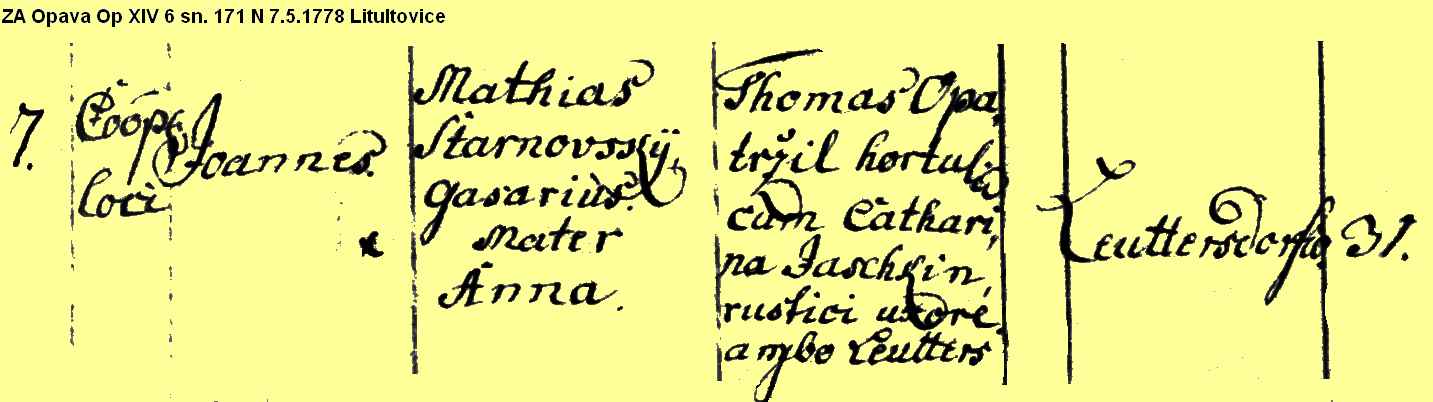 ZA Opava Op XIV 6 sn. 171 N 7.5.1778 Litultovice
7.
Coop.
loci
Joannes.
Mathias
Starnovsskÿ
gasarius.
Mater
Anna.
Thomas Opa,
tržil hortula
cum Cathari,
na Jaschkin,
rustici uxore,
ambo Leutters
Leuttersdorf
31.